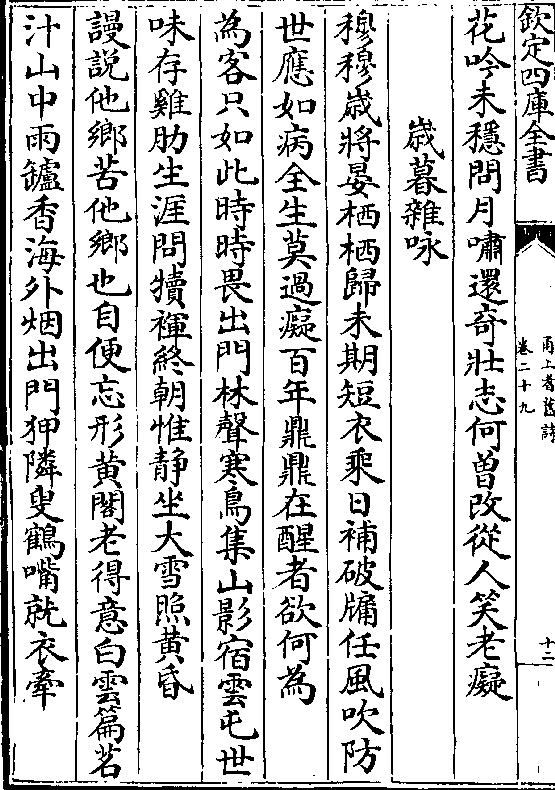 欽定四庫全書
甬上耆舊詩
卷二十九
十二
花吟未穩問月嘯還奇壯志何曽改從人笑老癡
歳暮雜咏
穆穆歳將晏栖栖歸未期短衣乗日補破牖任風吹防
世應如病全生莫過癡百年鼎鼎在醒者欲何為
為客只如此時時畏出門林聲寒鳥集山影宿雲屯世
味存雞肋生涯問犢褌終朝惟静坐大雪照黄昏
謾說他鄉苦他鄉也自便忘形黄閣老得意白雲篇茗
汁山中雨鑪香海外烟出門狎隣叟鶴嘴就衣牽